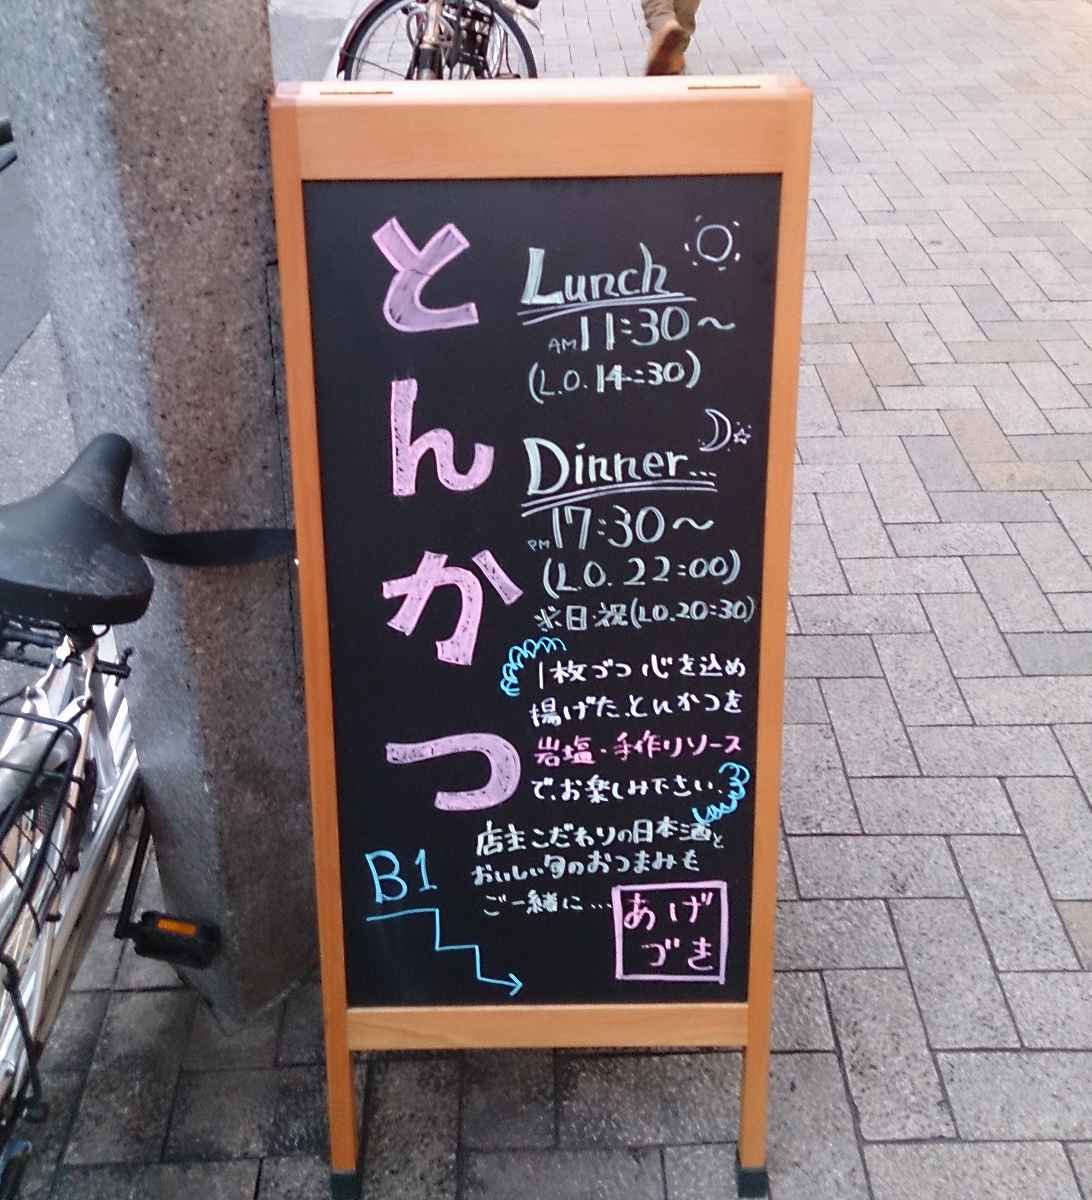 とんかつ
Lunch
AM 11:30〜
(L.O. 14:30)
Dinner...
PM 17:30〜
(L.O. 22:00)
※日・祝(L.O.20:30)
1枚づつ心を込め
揚げた、とんかつを
岩塩・手作りソース
で、お楽しみ下さい、
店主こだわりの日本酒と
おいしい旬のおつまみも
ご一緒に...
B1
あげ
づき